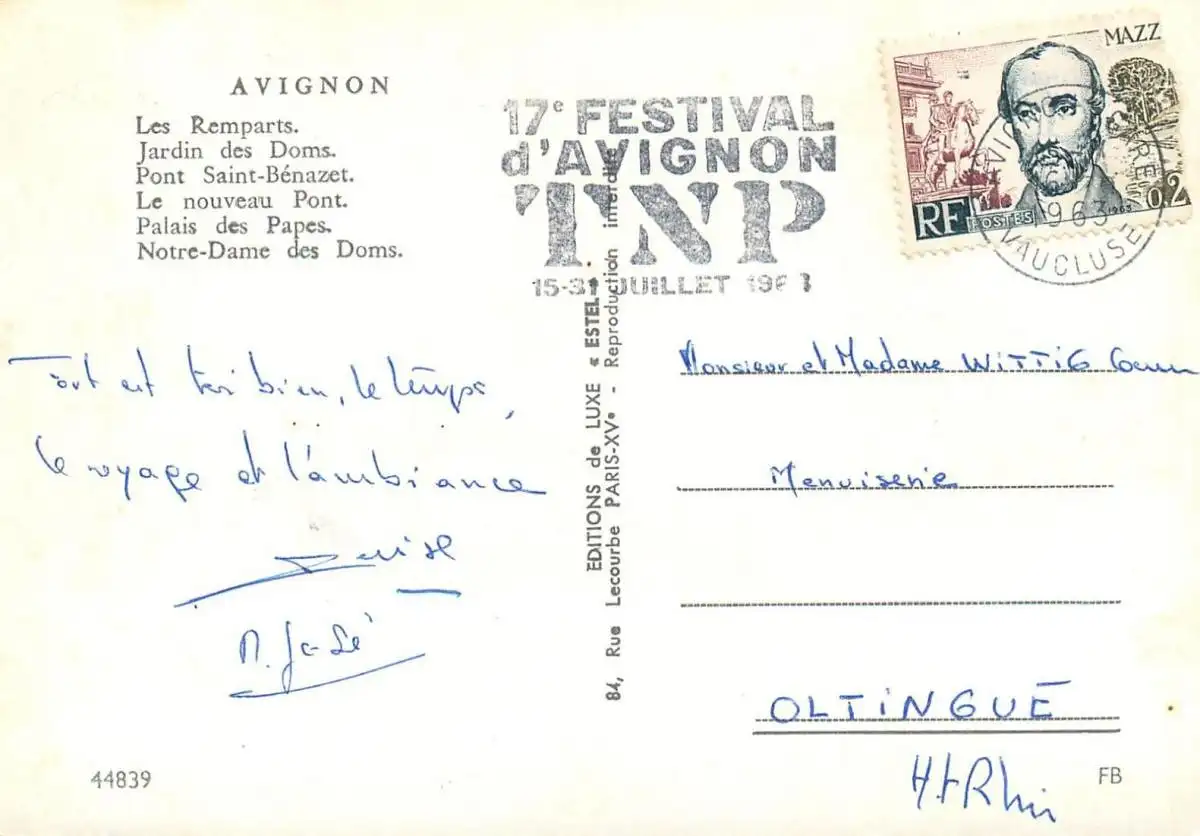 AVIGNON
Les Remparts.
Jardin des Doms.
Pont Saint-Bénazet.
Le nouveau Pont.
Palais des Papes.
Notre-Dame des Doms.
17e FESTIVAL
d'AVIGNON
TNP
15-31 JUILLET 1963
MAZZ
RF POSTES 1963 0,2
1963
VAUCLUSE
Tout est très bien, le temps,
le voyage et l'ambiance
Denise
M. José
EDITIONS de LUXE « ESTEL
84, Rue Lecourbe PARIS-XVe - Reproduction interdite
Monsieur et Madame WiTTiG
Menuiserie
OLTiNGUE
Ht Rhin
44839
FB